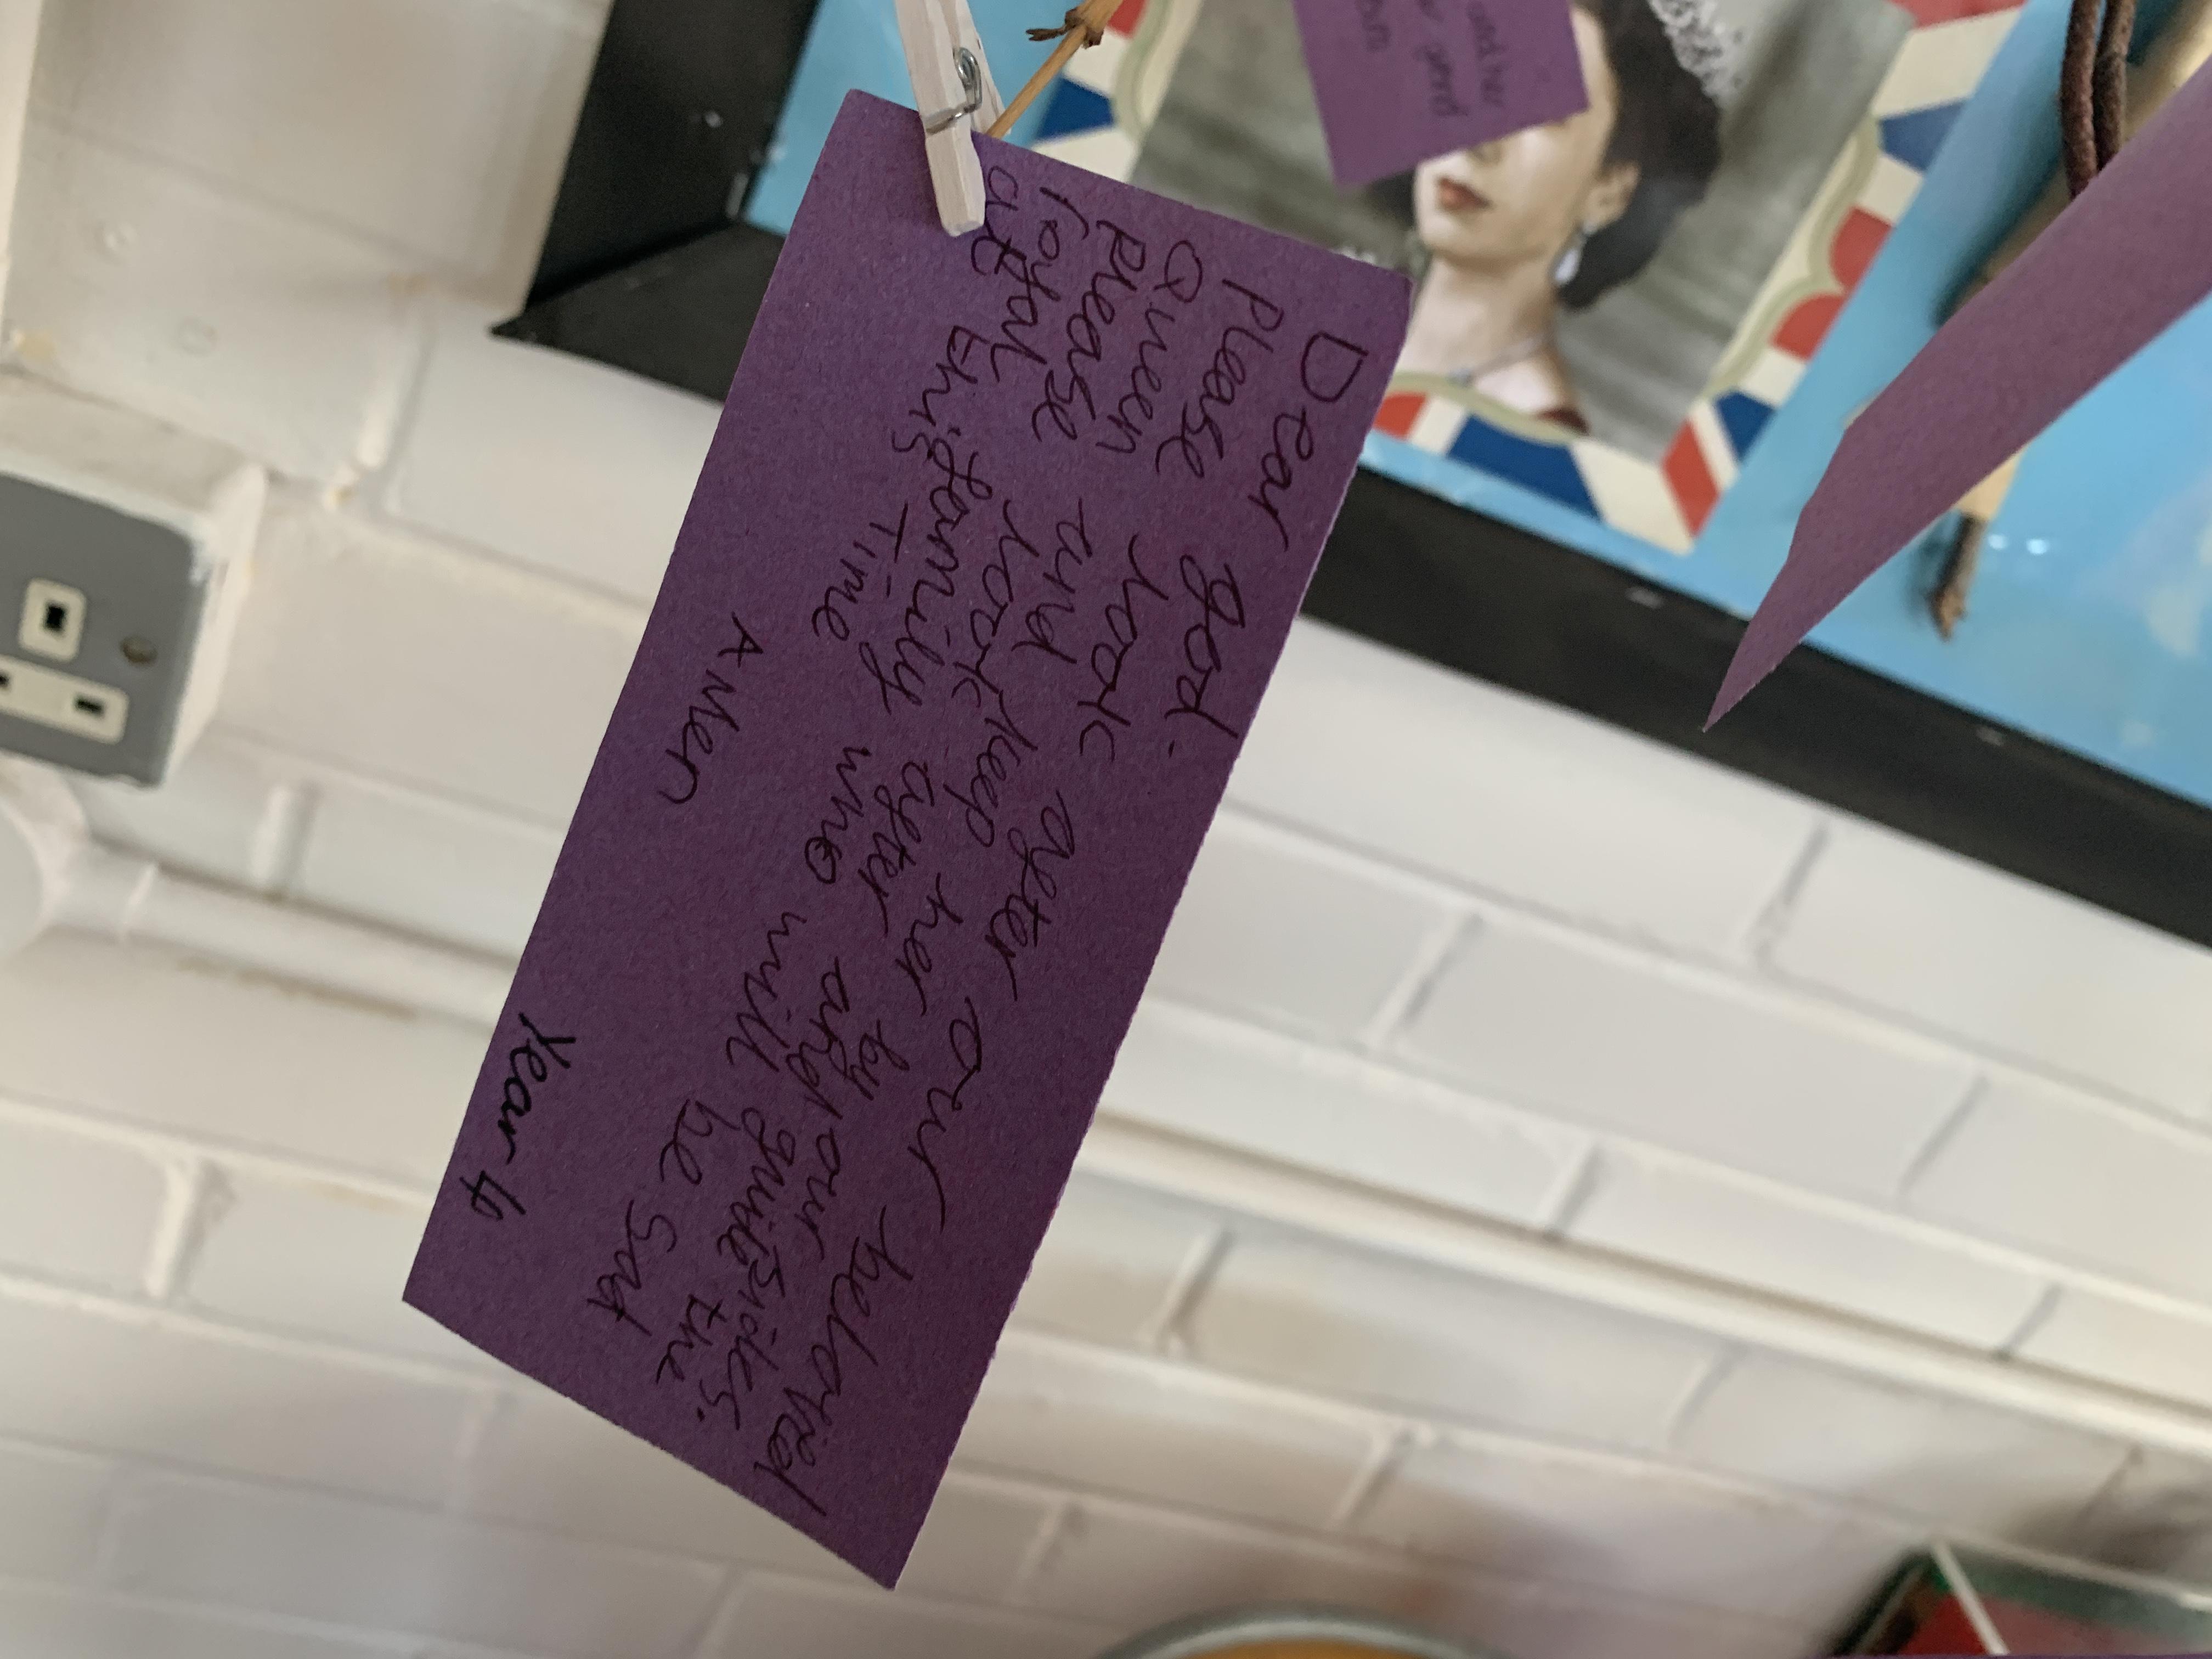 Dear god.
Please look after our beloved
Queen and keep her by our sides.
Please look after and guide the
royal family who will be sad
at this Time
AMen
Year 4
and her